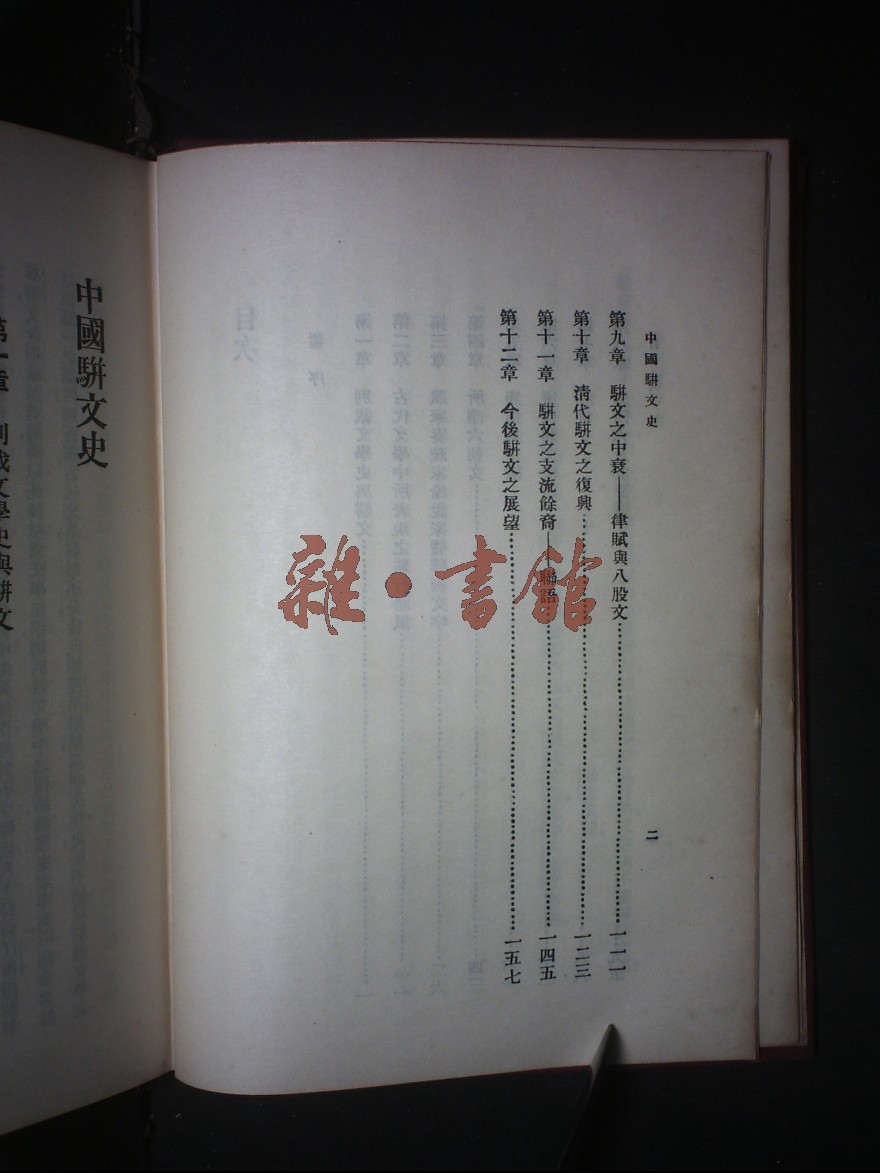 中國駢文史
二
第九章　駢文之中衰——律賦與八股文…………一一一
第十章　清代駢文之復興…………一二三
第十一章　駢文之支流餘裔——聯語…………一四五
第十二章　今後駢文之展望…………一五七
中國駢文史
第一章　別裁文學史與駢文
雜·書館